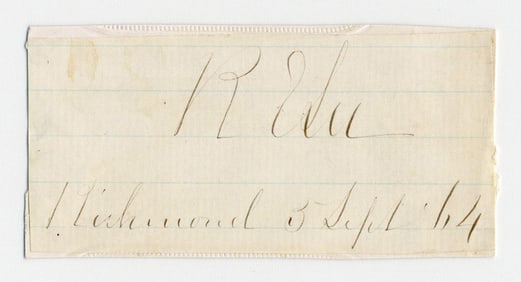 R E Lee
Richmond 5 Sept '64